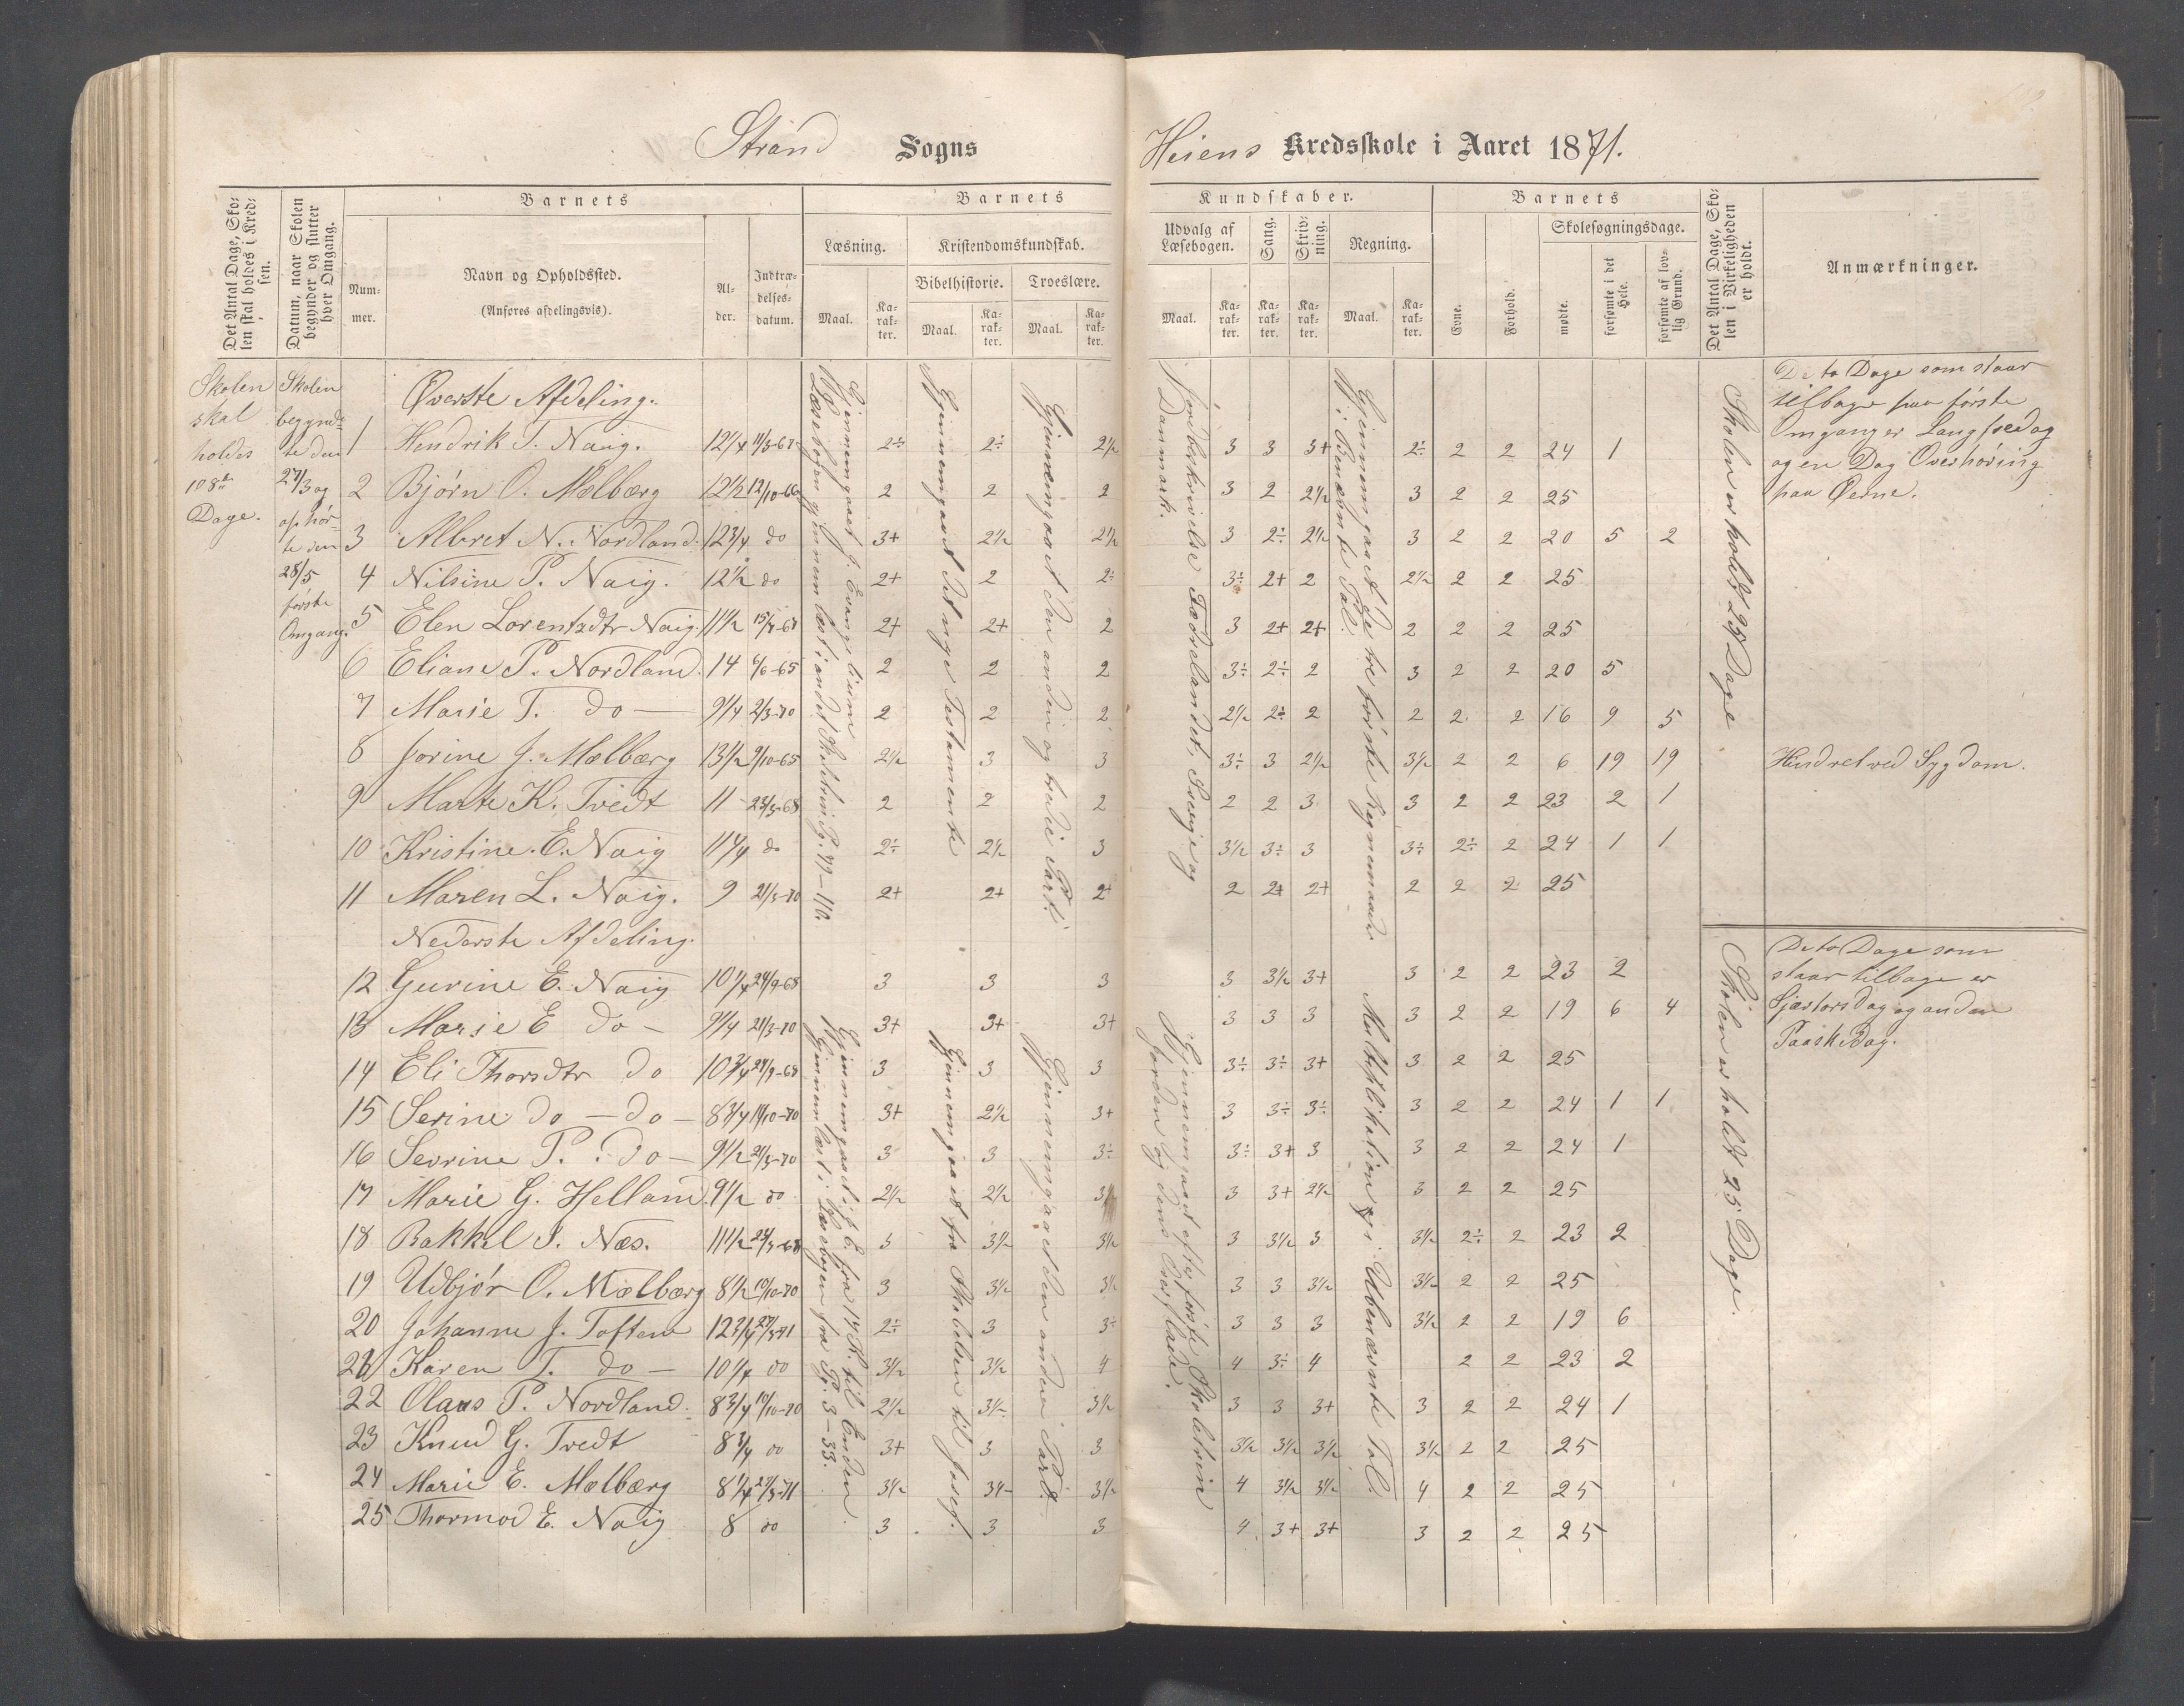 Strand Sogns Heiens Kredsskole i Aaret 1871.
Det Antal Dage, Skolen skal holdes i Kredsen.
Datum, naar Skolen begynder og slutter hver Omgang.
Barnets
Nummer.
Navn og Opholdssted.
(Anføres afdelingsvis).
Alder.
Indtrædelsesdatum.
Barnets
Kundskaber.
Læsning.
Maal.
Karakter.
Kristendomskundskab.
Bibelhistorie.
Maal.
Karakter.
Troeslære.
Maal.
Karakter.
Udvalg af Læsebogen.
Maal.
Karakter.
Sang.
Karakter.
Skrivning.
Karakter.
Regning.
Maal.
Karakter.
Barnets
Evne.
Forhold.
Skolesøgningsdage.
mødte.
forsømte i det Hele.
forsømte af lovlig Grund.
Det Antal Dage, Skolen i Virkeligheden er holdt.
Anmærkninger.
Skolen skal holdes 108 Dage.
Skolen begyndte den 27/3 og ophørte den 28/5 første Omgang.
Øverste Afdeling.
1 Hendrik T. Naig. 12 1/4 11/3-67 2÷ 2÷ 2 1/2 3 3 3+ 2÷ 2 2 24 1
2 Bjørn O. Mælbærg 12 1/2 12/10-66 2 2 2 3 2 2 1/2 3 2 2 25
3 Albret N. Nordland 12 3/4 do 3+ 2 1/2 2 1/2 3 2÷ 2 1/2 3 2 2 20 5 2
4 Nilsine P. Naig. 12 1/2 do 2+ 2 2÷ 3÷ 2+ 2 2 1/2 2 2 25
5 Elen Lorentzdtr Naig. 11 1/2 2+ 2+ 2 3 2+ 2+ 2 2 2 25
6 Eliane P. Nordland. 14 6/6-65 2 2 2 3÷ 2÷ 2 3 2 2 20 5
7 Marie T. do 9 1/4 2/3-70 2 2 2 2 1/2 2÷ 2 2 2 2 16 9 5
8 Jorine J. Mælbærg 13 1/2 9/10-65 2 1/2 3 3 3÷ 3 2 1/2 3 1/2 2 2 6 19 19 Hindret ved Sygdom.
9 Marte K. Tvedt 11 23/3-68 2 2 2 2 2 3 3 2 2 23 2 1
10 Kristine E. Naig 11 1/4 do 2÷ 2 1/2 3 3 1/2 3÷ 3 3÷ 2÷ 2 24 1 1
11 Maren L. Naig. 9 21/3-70 2+ 2+ 2+ 2 2+ 2+ 2 2 2 25
Nederste Afdeling.
12 Gurine E. Naig 10 1/4 24/9-68 3 3 3 3 3 1/2 3+ 3 2 2 23 2
13 Marie E do 9 1/4 21/3-70 3+ 3+ 3+ 3 3 3 3 2 2 19 6 4
14 Eli Thorsdtr do 10 3/4 24/9-68 3 3 3 3÷ 3÷ 3+ 3 2 2 25
15 Serine do - do 8 3/4 10/10-70 3+ 2 1/2 3+ 3 3÷ 3÷ 3 2 2 24 1 1
16 Sevrine P. do 9 1/2 21/3-70 3 3 3÷ 3÷ 3+ 3 3 2 2 24 1
17 Marie G. Helland. 9 1/2 do 2 1/2 2 1/2 3 1/2 3 3+ 2 1/2 3 2 2 25
18 Rakkel S. Næs. 11 1/2 23/3-68 3 3 1/2 3 1/2 3 3 1/2 3 3 1/2 2÷ 2 23 2
19 Udbjør O. Mælbærg 8 1/2 10/10-70 3 3 1/2 3 1/2 3 3 3 1/2 3 1/2 2 2 25
20 Johanne J. Toftene 12 3/4 27/3-71 2÷ 3 3÷ 3 3 3 3 1/2 2 2 19 6
21 Karen T. do 10 1/4 do 3 1/2 3 1/2 4 4 3÷ 4 2 2 23 2
22 Olaus P. Nordland. 8 3/4 10/10-70 2 1/2 3 1/2 3 1/2 3 3 3+ 3 2 2 24 1
23 Knud G. Tvedt 8 3/4 do 3+ 3 3 3 1/2 3 1/2 3 1/2 3 1/2 2 2 25
24 Marie E. Mælbærg 8 1/4 27/3-71 3 1/2 3 1/2 3 1/2 4 3 1/2 3 1/2 4 2 2 25
25 Thormod E. Naig 8 do 3 3 3 4 3+ 3+ 3 2 2 25
Gjennemgaaet J. Evangelium
Læsebogen gjennemlæst i andet Skoletrin Pg. 49-110.
Gjennemgaaet det nye Testamente
Gjennemgaaet den anden og tredie Part.
Jordbeskrivelse Fædrelandet, Sverige og Danmark.
Gjennemgaaet de tre første Regnemaader i Benævnte Tal.
Skolen er holdt 25 Dage
Gjennemgaaet fra 14 K. til Enden.
Gjennemlæst i Læsebogen fra Pg. 3-33.
Gjennemgaaet fra Skabelsen til Josef.
Gjennemgaaet den anden Part.
Gjennemgaaet efter første Skoletrin
Jorden og dens Overflade.
Multiplikation i Ubenævnte Tal.
Skolen er holdt 25 Dage.
De to Dage som staar
tilbage paa første
omgang er Langfredag
og en Dag Overhøring
paa Øerne.
De to Dage som
staar tilbage er
Skjærtorsdag og anden
Paaskedag.